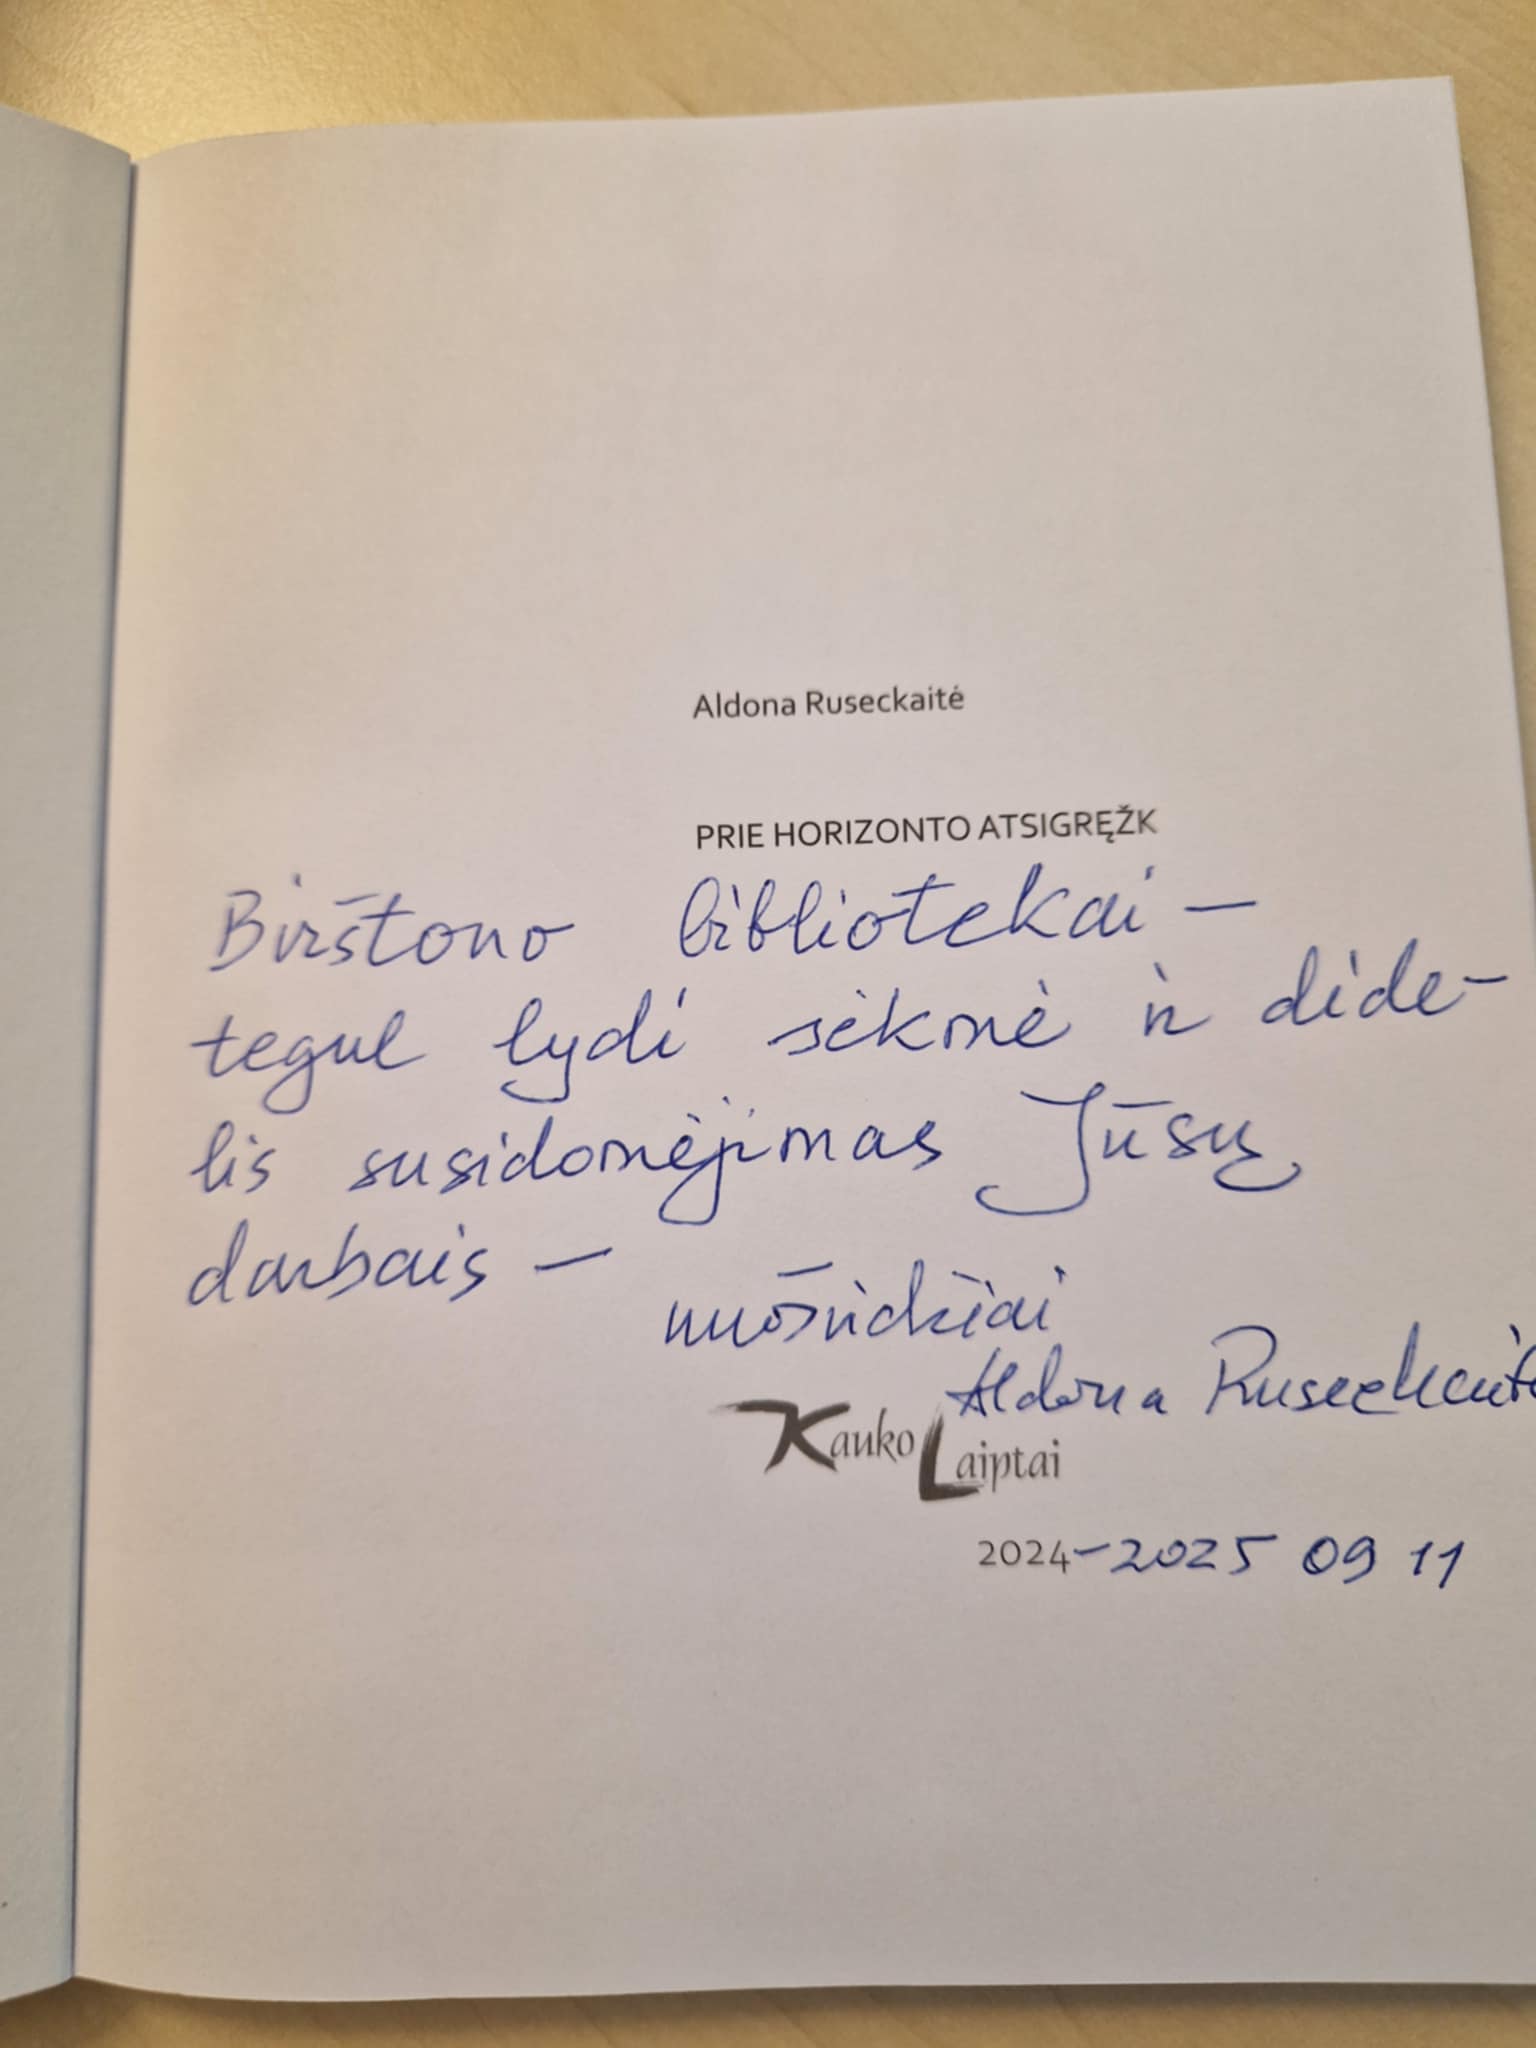 Aldona Ruseckaitė
PRIE HORIZONTO ATSIGRĘŽK
Birštono bibliotekai –
tegul lydi sėkmė ir dide-
lis susidomėjimas Jūsų
darbais –
nuoširdžiai
Aldona Ruseckaitė
Kauko Laiptai
2024–2025 09 11